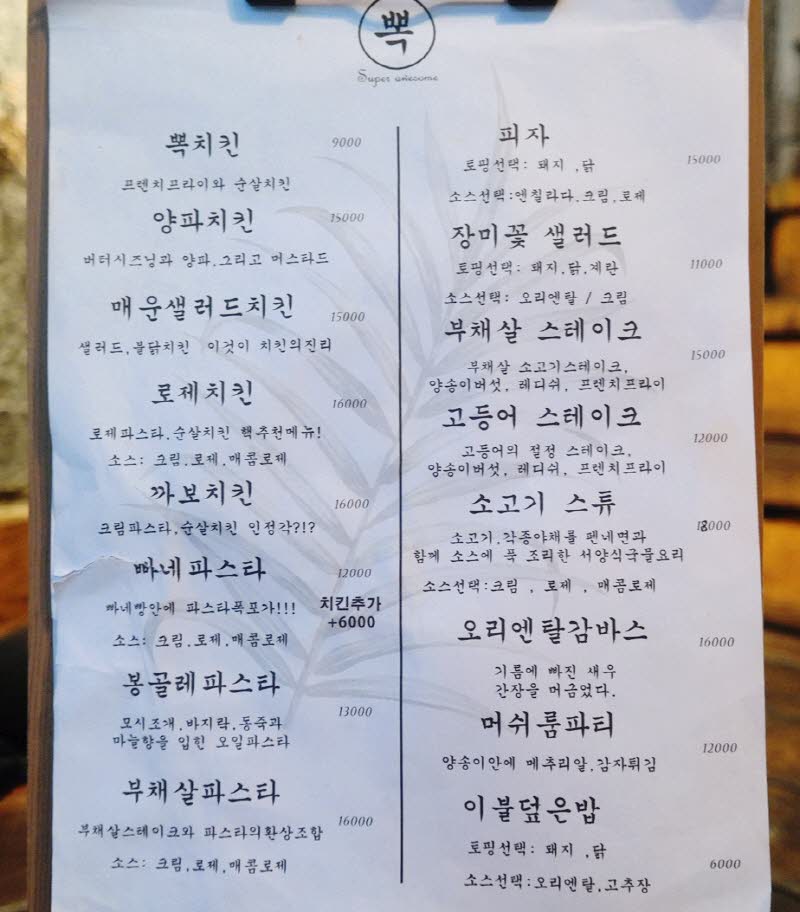 뽁
Super awesome
뽁치킨 9000
프렌치프라이와 순살치킨
양파치킨 15000
버터시즈닝과 양파.그리고 머스타드
매운샐러드치킨 15000
샐러드,불닭치킨 이것이 치킨의진리
로제치킨 16000
로제파스타.순살치킨 핵추천메뉴!
소스: 크림.로제.매콤로제
까보치킨 16000
크림파스타.순살치킨 인정각?!?
빠네파스타 12000
빠네빵안에 파스타폭포가!!! 치킨추가
+6000
소스: 크림.로제.매콤로제
봉골레파스타 13000
모시조개.바지락.동죽과
마늘향을 입힌 오일파스타
부채살파스타 16000
부채살스테이크와 파스타의환상조합
소스: 크림,로제,매콤로제
피자 15000
토핑선택: 돼지 ,닭
소스선택:엔칠라다.크림,로제
장미꽃 샐러드 11000
토핑선택: 돼지,닭,계란
소스선택: 오리엔탈 / 크림
부채살 스테이크 15000
부채살 소고기스테이크,
양송이버섯, 레디쉬, 프렌치프라이
고등어 스테이크 12000
고등어의 절정 스테이크,
양송이버섯, 레디쉬, 프렌치프라이
소고기 스튜 18000
소고기,각종야채를 펜네면과
함께 소스에 푹 조리한 서양식국물요리
소스선택:크림 , 로제 , 매콤로제
오리엔탈감바스 16000
기름에 빠진 새우
간장을 머금었다.
머쉬룸파티 12000
양송이안에 메추리알,감자튀김
이불덮은밥 6000
토핑선택: 돼지 ,닭
소스선택:오리엔탈,고추장